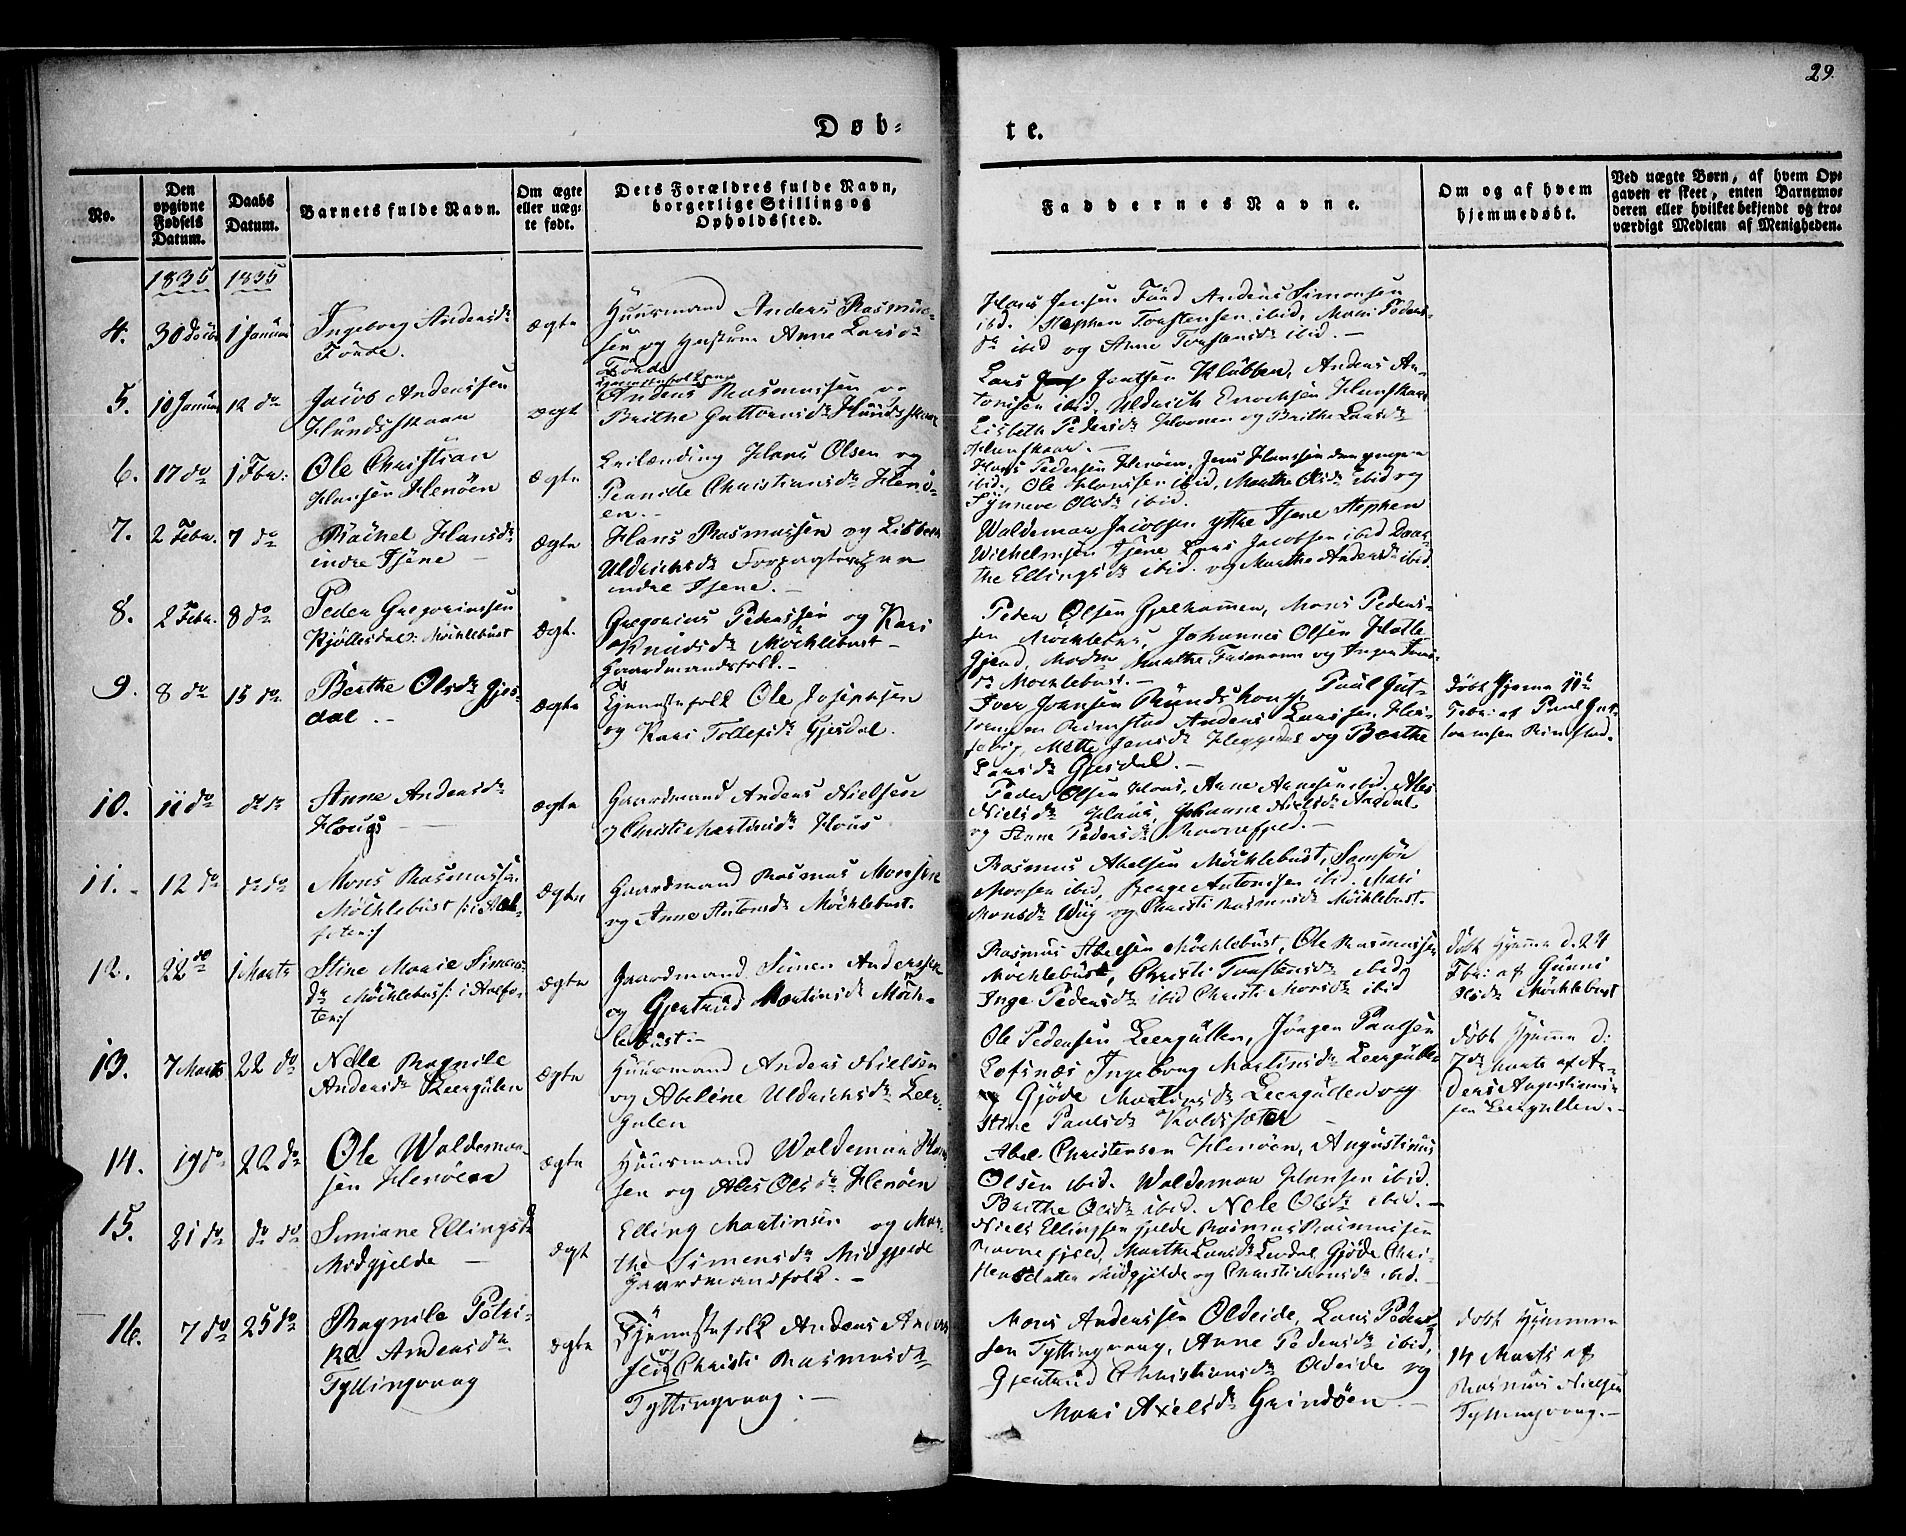 29.
Døb-
te.
No.
Den opgivne Fødsels Datum.
Daabs Datum.
Barnets fulde Navn.
Om ægte eller uægte født.
Dets Forældres fulde Navn, borgerlige Stilling og Opholdssted.
Faddernes Navne.
Om og af hvem hjemmedøbt.
Ved uægte Børn, af hvem Opgaven er skeet, enten Barnemoderen eller hvilket bekjendt og troværdigt Medlem af Menigheden.
1835 1835
4. 30 Decbr 1 Januar
Ingeborg Andersdr
Förde.
ægte
Huusmand Anders Rasmus-
sen og Hustrue Anne Larsdr
Förde
Hans Jensen Förd Anders Simonsen
ibid. Stephen Torstensen ibid, Mari Peders-
dr ibid og Anne Torstensdr ibid. –
5. 10 Januar 12 do
Jacob Anderssen
Hundskaar
ægte
Tjenestefolkene
Anders Rasmussen og
Brithe Guttormsdr Hundskaar
Lars Jentsen Klubben, Anders An-
tonisen ibid, Uldrich Enochsen Hunskaar
Lisbeth Pedersdr Hovnen og Brithe Larsdr
Hunskaar. –
6. 17 do 1 Febr:
Ole Christian
Hansen Henöen
ægte
Leilænding Hans Olsen og
Pernille Christiansdr Henö-
en. –
Hans Pedersen Henöen, Jens Hanssen den yngre
ibid, Ole Hansen ibid, Marthe Olsdr ibid og
Synneve Olsdr ibid.
7. 2 Febr. 7 do
Rachel Hansdr
indre Hjene –
ægte
Hans Rasmussen og Lisbeth
Uldrichsdr
indre Hjene. –
Waldemar Jacobsen yttre Hjene Stephen
Wilhelmsen Hjene Lars Jacobsen ibid Daar-
the Ellingsdr ibid. og Marthe Andersdr ibid
8. 2 Febr. 8 do
Peder Gregoriussen
Kjöllesdal: Möchlebust
Ægt.
Gregorius Pederssen og Kari
Knudsdr Möchlebust –
Gaardmandsfolk. –
Peder Olsen Gjelhammer, Mons Peders-
sen Möchlebust, Johannes Olsen
Gjerd, Marthe og Inger
dr Mochlebust. –
9. 8 do 15 do
Berthe Olsdr Gjes-
dal. –
Ægte
Tjenestefolk Ole Josephsen
og Kari Tollefsdr Gjesdal.
Iver Joensen Rundskoug, Paul Gut-
tormsen Rimstad Anders Larssen
Mette Jensdr Heggedal og Berthe
Larsdr Gjesdal. –
Döbt Hjemme 11te
Febr: af Paul Gut-
tormsen Rimstad.
10. 11 do do do
Anne Andersdr
Hougs –
ægte
Gaardmand Anders Nielsen
og Christi Martinsdr Hous
Peder Olsen Hous, Arne Arnesen ibd. Ales
Nielsdr Hous, Johanne Nielsdr Aardal
og Anne Pedersdr Ravnefjeld. –
11. – 12 do do do
Mons Rasmussen
Möchlebust /: i Aal-
foten :/
ægte
Gaardmand Rasmus Monsen
og Anne Antonsdr Möchlebust.
Rasmus Abelsen Möchlebust, Samson
Monsen ibid, Berge Antonisen ibid. Mari
Monsdr Wiig og Christi Rasmusdr Möchlebust.
12. 22 do 1 Marts
Stine Marie Simens-
dr Möchlebust /: i Aalfo-
ten :/
ægte
Gaardmand Simen Anderssen
og Gjertrud Martinsdr Möch-
lebust. –
Rasmus Abelsen Möchlebust, Ole Rasmussen
Möchlebust, Christi Torstensdr ibid
Inge Pedersdr ibid Christi Monsdr ibid
döbt Hjemme d. 24
Fbr: af Gunni
Olsdr Möchlebust
13. 7 Marts 22 do
Nille Ragnile
Andersdr Leergulen
ægte
Huusmand Anders Nielsen
og Abeline Uldrichsdr Leer-
gulen
Ole Pedersen Leergullen, Jörgen Paulsen
Lofsnæs Ingeborg Martinsdr Leergullen
Gjöde Martinsdr Leergullen og
Stine Paulsdr Koldsæter
döbt Hjemme d:
7de Marts af An-
ders Augustinus-
sen Leergullen. –
14. 19 do 22 do
Ole Waldemar-
sen Henöen
ægte
Huusmand Waldemar Han-
sen og Ales Olsdr Henöen
Abel Christensen Henöen, Augustinus
Olsen ibid. Waldemar Hansen ibid.
Brithe Olsdr ibid. Nele Olsdr ibid. –
15. 21 do do do
Simiane Ellingsdr
Midgjelde –
ægt
Elling Martinsen og Mar-
the Simensdr Midgjelde
Gaardmandsfolk. –
Niels Ellingsen Gjelde Rasmus Rasmussen
Ravnefjeld, Marthe Larsdr Levdal Gjöde Chri-
stensdatter Midgjelde og Christi Monsdr ibid. –
16. 7 do 25 do
Ragnile Petri-
ke Andersdr
Tyttingvaag
ægte
Tjenestefolk Anders Anders
sen og Christi Rasmusdr
Tyttingvaag. –
Mons Anderssen Oldeide, Lars Peders-
sen Tyttingvaag, Anne Pedersdr ibid,
Gjertrud Christiansdr Oldeide og
Mari Axelsdr Grindöen –
döbt Hjemme
14 Marts af
Rasmus Nielsen
Tyttingvaag. –